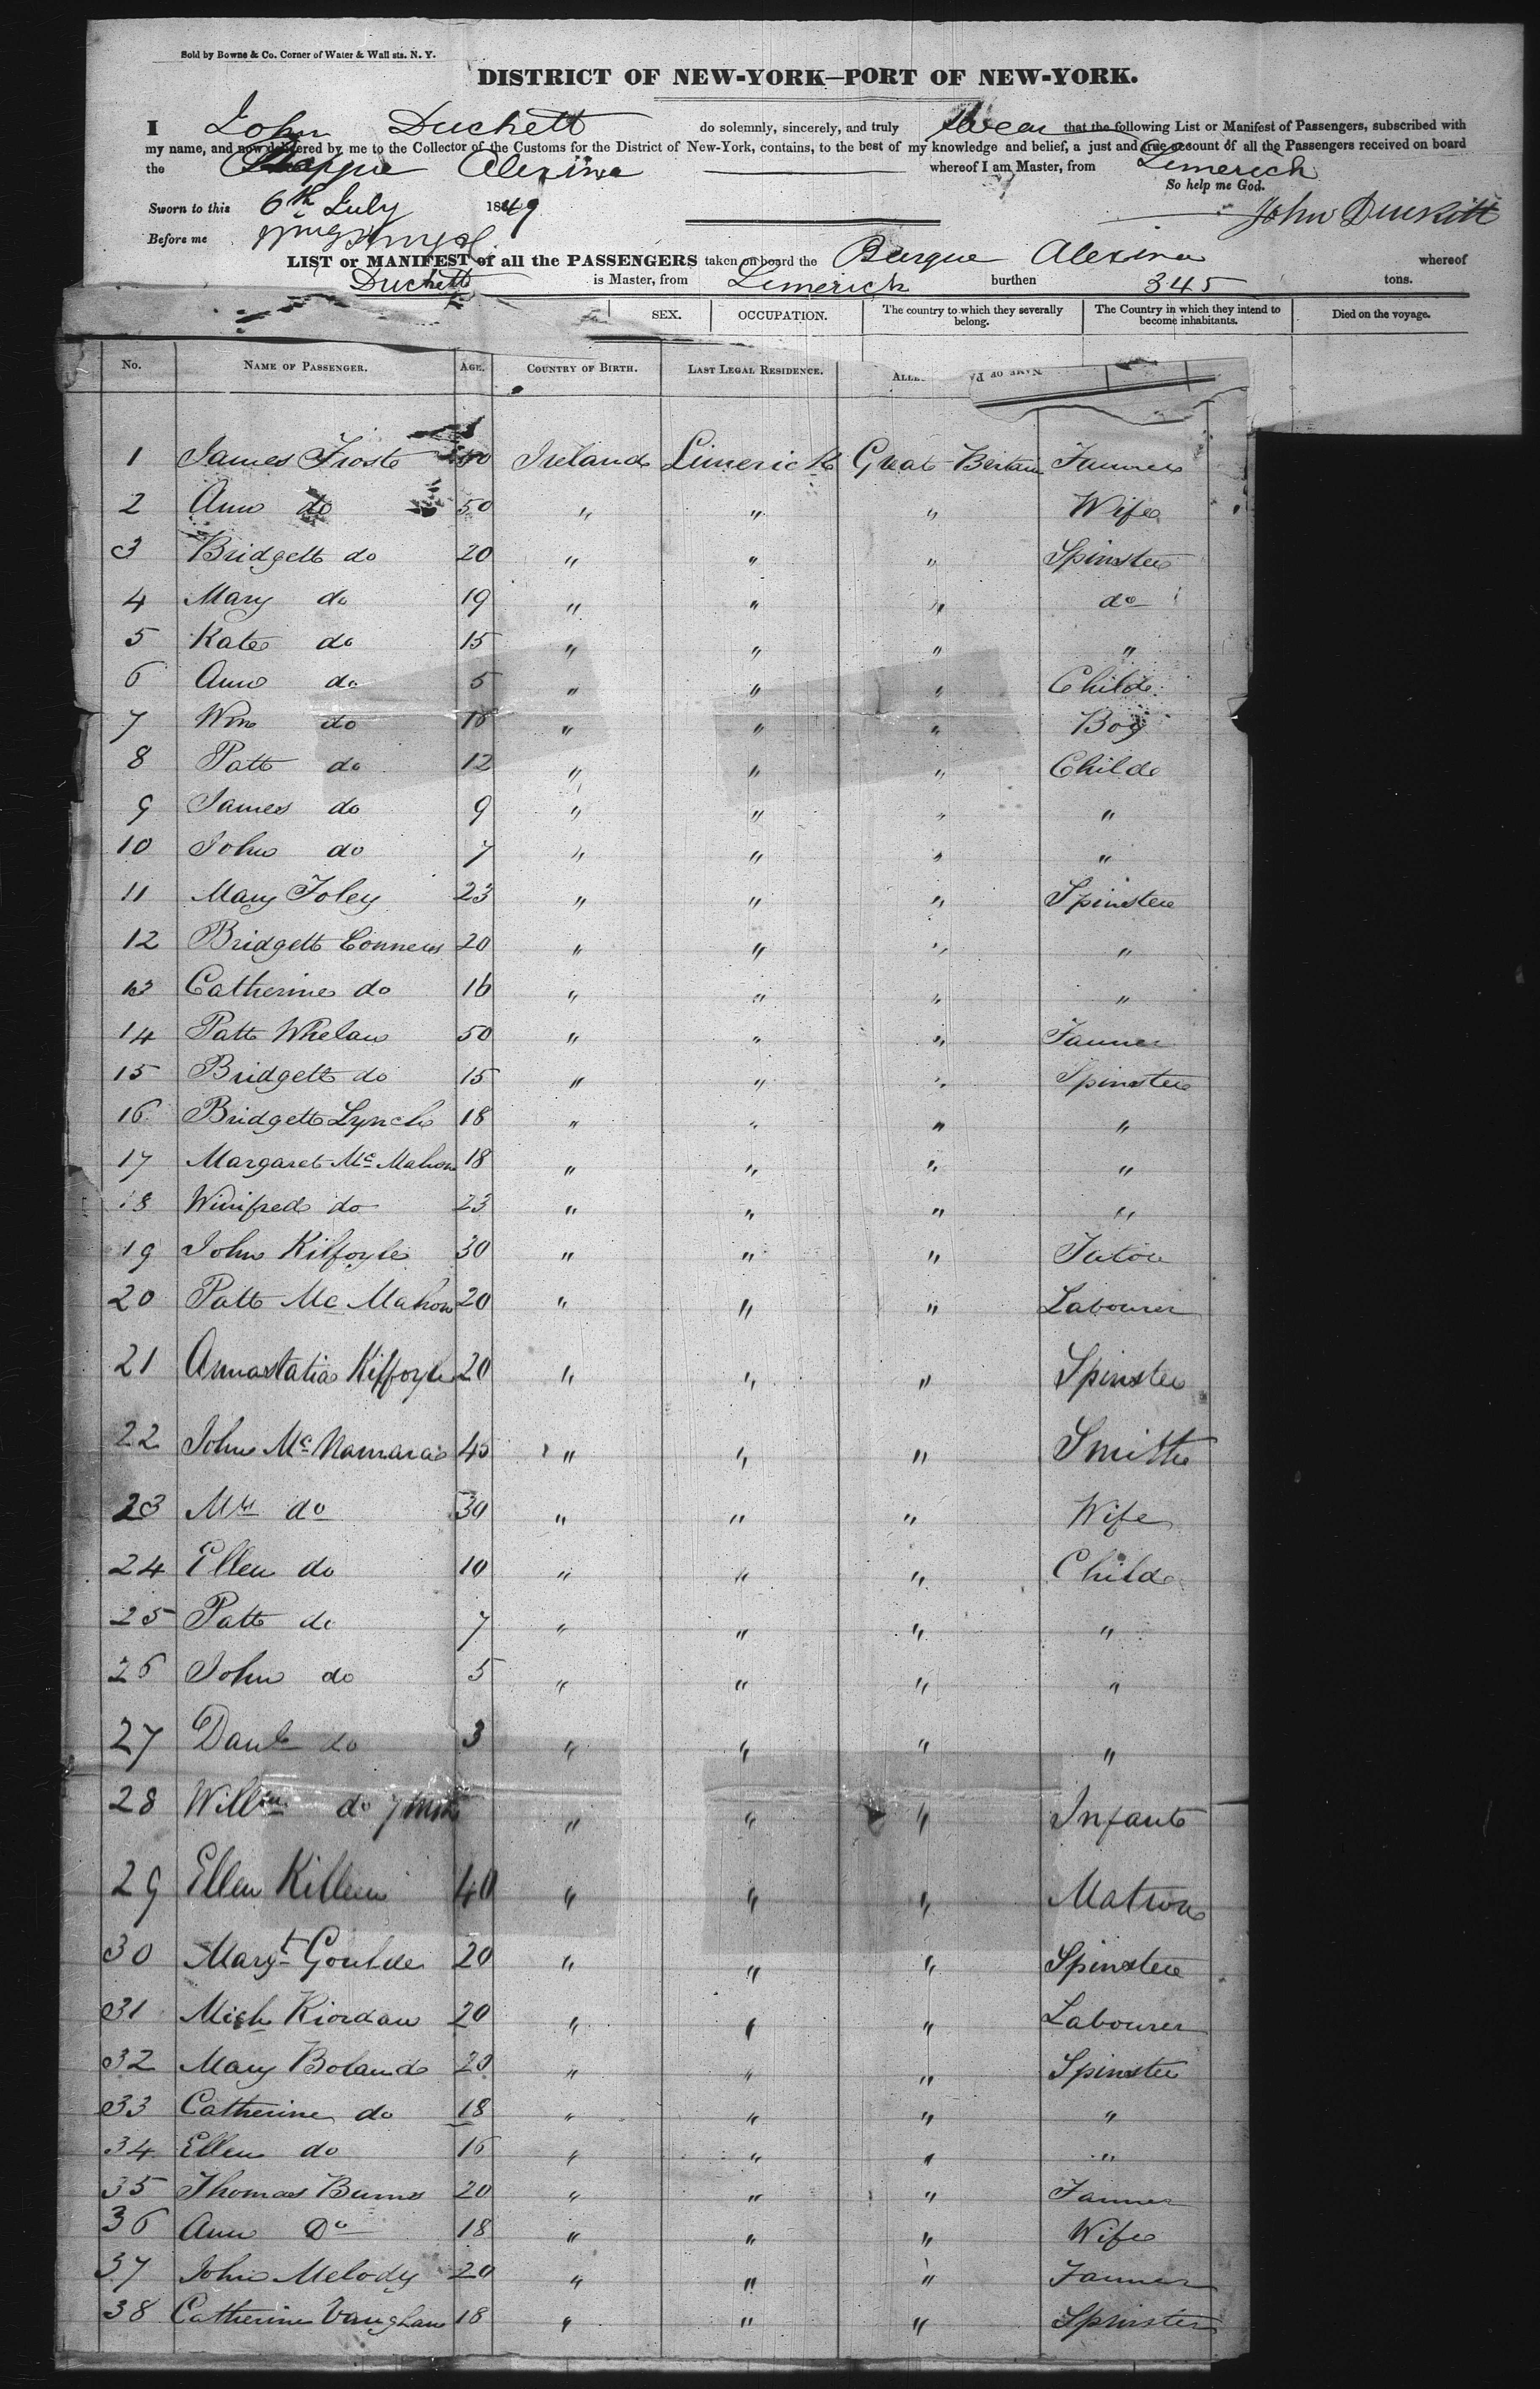 Sold by Bowne & Co. Corner of Water & Wall sts. N. Y.
DISTRICT OF NEW-YORK—PORT OF NEW-YORK.
I John Duckett do solemnly, sincerely, and truly Swear that the following List or Manifest of Passengers, subscribed with
my name, and now delivered by me to the Collector of the Customs for the District of New-York, contains, to the best of my knowledge and belief, a just and true account of all the Passengers received on board
the Barque Alexina whereof I am Master, from Limerick
So help me God.
Sworn to this 6th July 1849
John Duckitt
Before me
LIST or MANIFEST of all the PASSENGERS taken on board the Barque Alexina whereof
Duckett is Master, from Limerick burthen 345 tons.
SEX. OCCUPATION. The country to which they severally belong. The Country in which they intend to become inhabitants. Died on the voyage.
No. NAME OF PASSENGER. AGE. COUNTRY OF BIRTH. LAST LEGAL RESIDENCE. ALLE NAME OF PA
1 James Frost 50 Ireland Limerick Great Britain Farmer
2 Ann do 50 " " " Wife
3 Bridgett do 20 " " " Spinster
4 Mary do 19 " " " do
5 Kate do 15 " " " "
6 Ann do 5 " " " Child
7 Wm do 18 " " " Boy
8 Patt do 12 " " " Child
9 James do 9 " " " "
10 John do 7 " " " "
11 Mary Foley 23 " " " Spinster
12 Bridgett Conners 20 " " " "
13 Catherine do 16 " " " "
14 Patt Whelan 50 " " " Farmer
15 Bridgett do 15 " " " Spinster
16 Bridgett Lynch 18 " " " "
17 Margaret Mc Mahon 18 " " " "
18 Winifred do 23 " " " "
19 John Kilfoyle 30 " " " Tutor
20 Patt Mc Mahon 20 " " " Labourer
21 Annastatia Kilfoyle 20 " " " Spinster
22 John Mc Namara 45 " " " Smith
23 Mrs do 30 " " " Wife
24 Ellen do 10 " " " Child
25 Patt do 7 " " " "
26 John do 5 " " " "
27 Danl do 3 " " " "
28 Willm do 7 mths " " " Infant
29 Ellen Killeen 40 " " " Matron
30 Margt Gould 20 " " " Spinster
31 Mich Riordan 20 " " " Labourer
32 Mary Boland 20 " " " Spinster
33 Catherine do 18 " " " "
34 Ellen do 16 " " " "
35 Thomas Burns 20 " " " Farmer
36 Ann Do 18 " " " Wife
37 John Melody 20 " " " Farmer
38 Catherine Vaughan 18 " " " Spinster